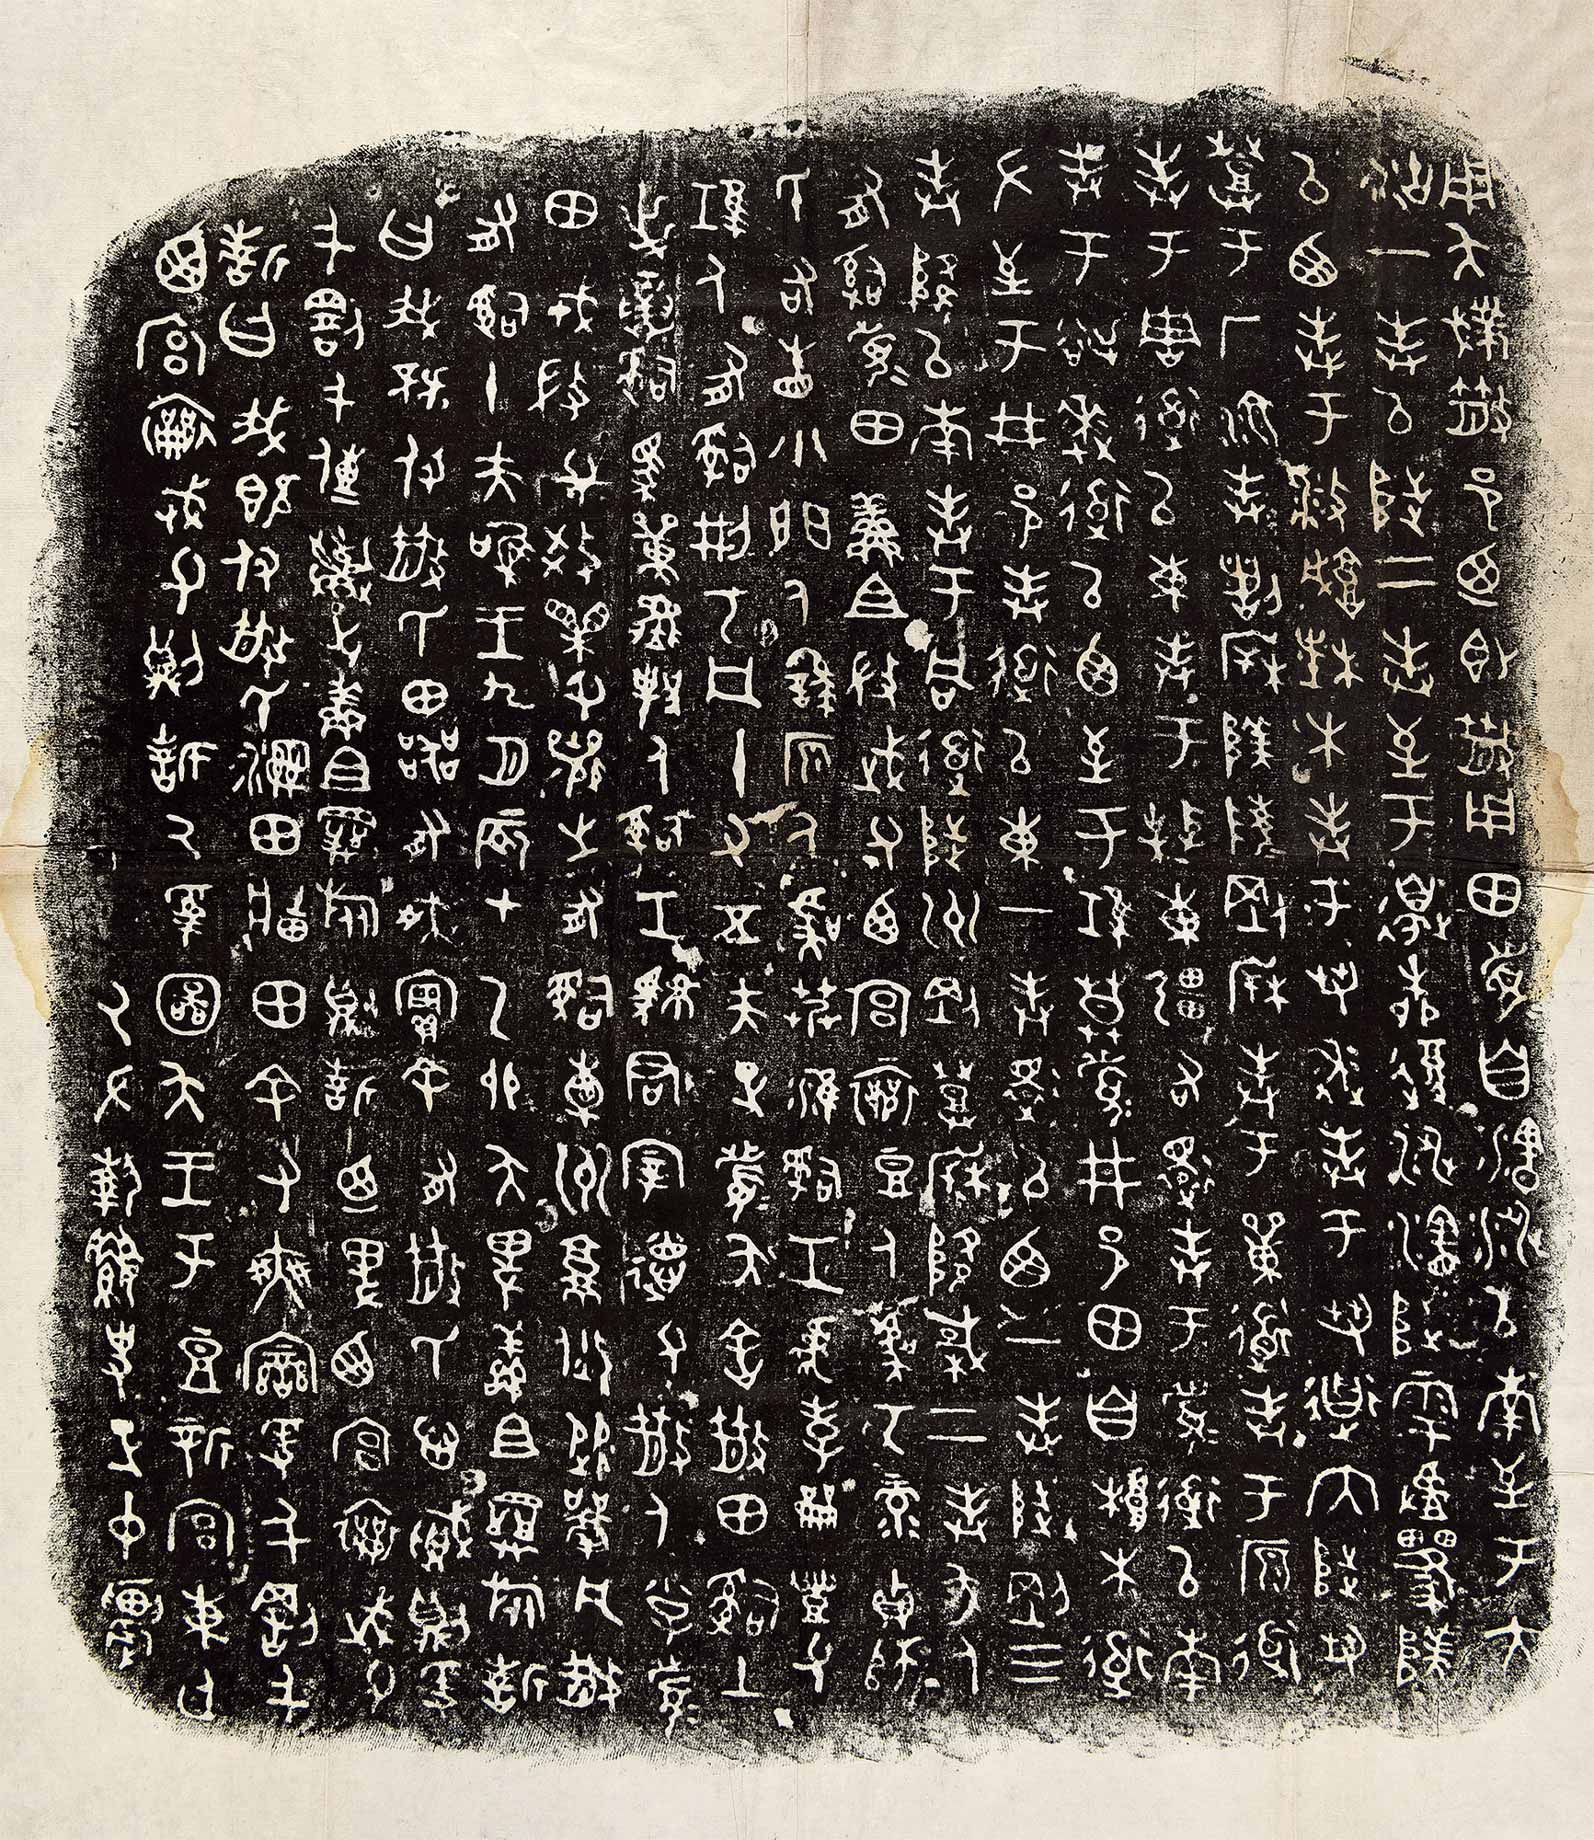 用夨𢦏散邑乃即散用田眉自瀗涉以南至于大
沽一奉以陟二奉至于邊柳復涉瀗陟雩𠭯𨻎
以西奉于播城楮木奉于芻逨奉于芻道內陟芻
登于厂湶奉割柝𨻎陵剛柝奉于單道奉于原道
奉于周道以東奉于棹東疆右還奉于眉道以南
奉于𥻳逨道以西至于堆莫眉井邑田自桹木道
左至于井邑奉道以東一奉還以西一奉陟剛三
奉降以南奉于同道陟州剛登柝降棫二奉夨人
有司眉田鮮且微武父西宮襄豆人虞丂彔貞師
氏右眚小門人繇原人虞艿淮司工虎孛龠豐父
堆人有司刑丂凡十又五夫正眉夨舍散田司土
屰寅司馬單堒邦人司工駷君宰德父散人小子眉
田戎微父效果父襄之有司橐州就焂從𩰬凡散
有司十夫唯王九月辰才乙卯夨卑鮮且𢍰旅誓
曰我既付散氏田器有爽實余有散氏心賊則爰
千罰千傳棄之鮮且𢍰旅則誓乃卑西宮襄武父
誓曰我既付散氏濕田牆田余又爽變爰千罰千
西宮襄武父則誓厥受圖夨王于豆新宮東廷
厥左執䌛史正中農